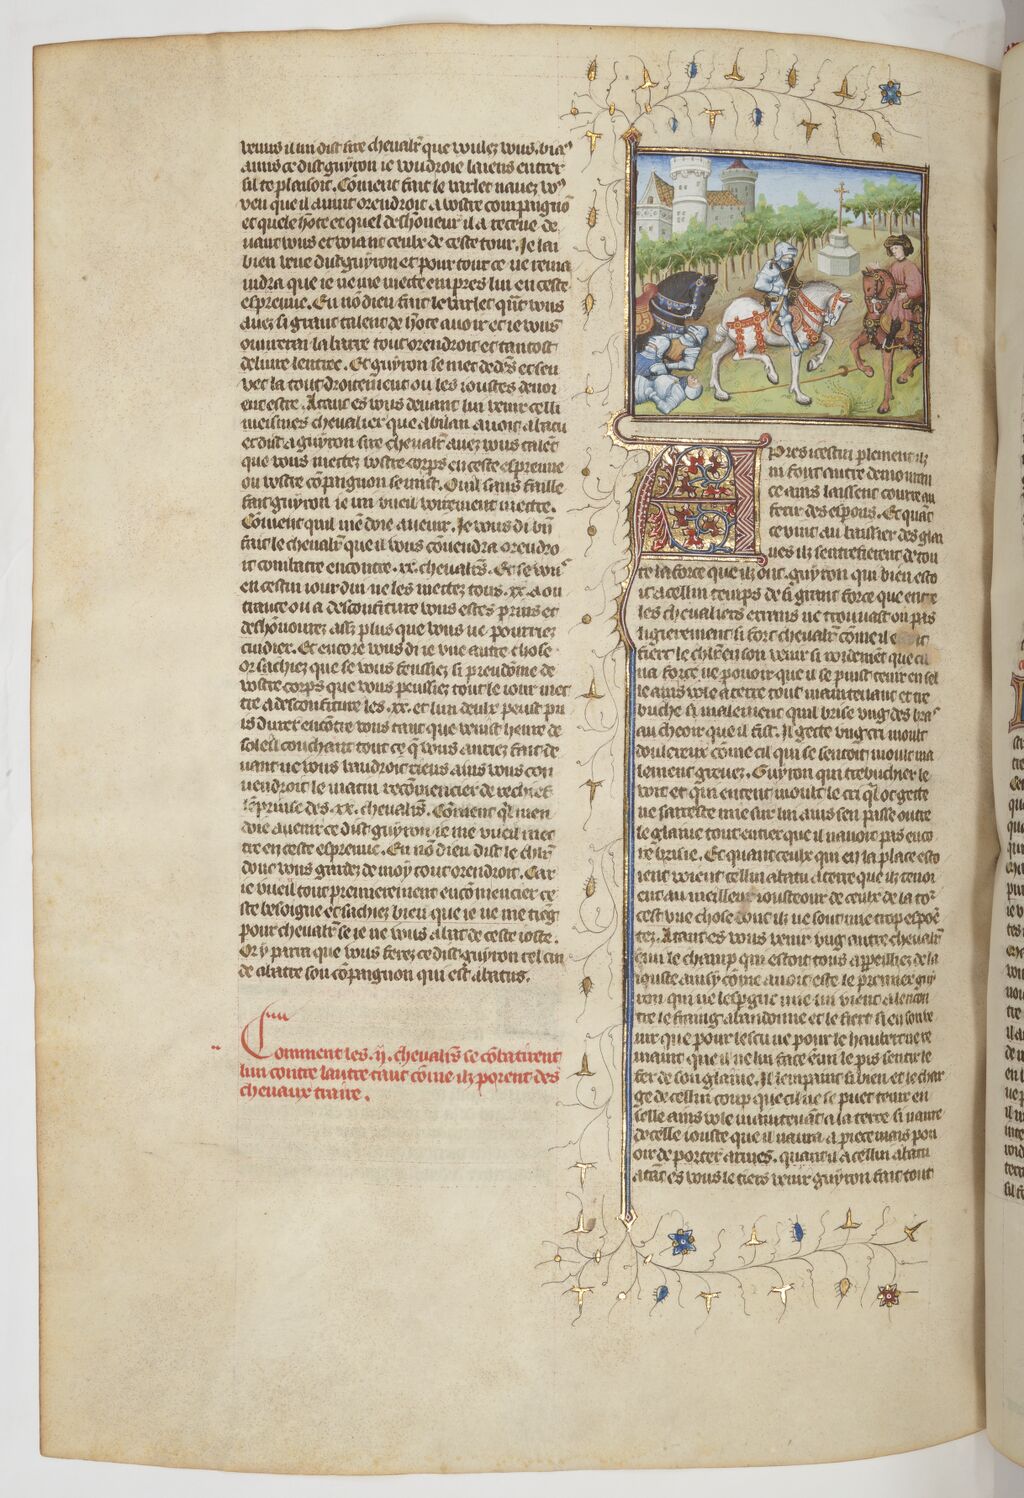 venus il lun dist sire chevalr̄ que voulez vous. biax
amis ce dist guyron ie voudroie laiens entrer
sil te plaisoit. Cōment fait le varlet navez vo9
veu que il avint orendroit a vostre compaignō
et quele hōte et quel deshōneur il a receue de
vant vous et voiant ceulx de ceste tour. Je lai
bien veue dist guyron et pour tout ce ne rema
indra que ie ne me mette empres lui en ceste
espreuve. En nō dieu fait le varlet qūt vous
avez si grant talent de hōte avoir et ie vous
ouvrerai la barre tout orendroit et tantost
delivre lentree. Et guyron se met dedēs et sen
vet la tout droitement ou les ioustes devoi
ent estre. Atant es vous devant lui venir celli
meismes chevalier que abilan avoit abatu
et dist a guyron sire chevalr̄ avez vous talēt
que vous mettez vostre corps en ceste espreuve
ou vostre cōpaignon se mist. Ouil sans faille
fait guyron ie mi vueil voirement mettre.
Cōment quil mē doie avenir. Je vous di bn̄
fait le chevalr̄ que il vous cōvendra orendro
it combatre encontre .xx. chevalr̄s. Et se vous
en cestui iour dui ne les mettez tous .xx. a ou
trance ou a desconfiture vous estes prins et
deshōnourez assz plus que vous ne pourriez
cuidier. Et encore vous di ie une autre chose
or sachiez que se vous feussiez si preudōme de
vostre corps que vous peussiez tout le iour met
tre a desconfiture les .xx. et lun deulx peust pu
is durer encōtre vous tant que venist heure de
soleil couchant tout ce q̄ vous auriez fait de
vant ne vous vaudroit riens ains vous con
vendroit le matin recōmencier de rechief
lēprinse des .xx. chevalr̄s. Cōment ql men
doie avenir ce dist guyron ie me vueil met
tre en ceste espreuve. En nō dieu dist le chlr̄
donc vous gardez de moy tout orendroit. Car
ie vueil tout premierement encōmencier ce
ste besoigne et sachiez bien que ie ne me tieg
pour chevalr̄ se ie ne vous abat de ceste iouste.
Or y parra que vous ferez ce dist guyron cel cui
de abatre son cōpaignon qui est abatus.
Comment les .ij. chevalr̄s se cōbatirent
lun contre lautre tant cōme ilz porent des
chevaux traire.
Apres cestui plement ilz
ni font autre demouran
ce ains laissent courre au
ferir des esporons. Et quāt
ce vint au baissier des glai
ves ilz sentrefierent de tou
te la force que ilz ont. guyron qui bien esto
it a cellui temps de si grant force que entre
les chevaliers errans ne trouvast on pas
ligierement si fort chevalr̄ cōme il estoit
fiert le chlr̄ en son venir si roidement que cil
na force ne pouoir que il se puist tenir en sel
le ains vole a terre tout maintenant et tre
buche si malement quil brise ung des bras
au cheoir que il fist. Il gette ung cri moult
doulereux cōme cil qui se sentoit moult ma
lement grevez. Guyron qui trebuchier le
voit et qui entent moult le cri ql ot gette
ne sarreste mie sur lui ains sen passe outre
le glaive tout entier que il navoit pas enco
re brisie. Et quant ceulx qui en la place esto
ient voient cellui abatu a terre que ilz tenoi
ent au meilleur iousteour de ceulx de la tor
cest une chose dont ilz ne sont mie trop espoē
tez. Atant es vous venir ung autre chevalr̄
ēmi le champ qui estoit tous appeilliez de la
iouste ainsy cōme avoit este le premier guy
ron qui ne lespgne mie lui vient a lencon
tre le fraing abandonne et le fiert si en son ve
nir que pour lescu ne pour le haubert ne re
maint que il ne lui face ēmi le pis sentir le
fer de son glaive. Il lempaint si bien et le char
ge de cellui coup que cil ne se puet tenir en
selle ains vole maintenāt a la terre si navre
de celle iouste que il naura a piece mais pou
oir de porter armes. quant il a cellui abatu
atāt es vous le tiers venir guyron fait tout